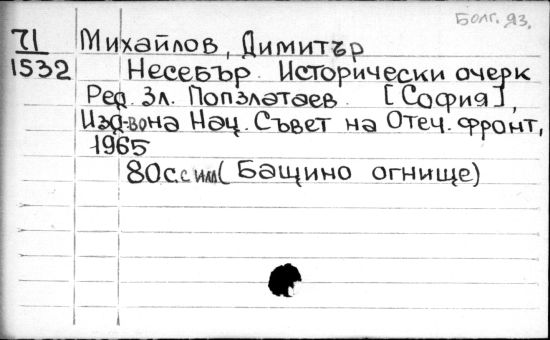 Болг. яз.
71
1532
Михайлов, Димитър
Несебър. Исторически очерк
Ред. Зл. Попзлатаев. [София],
Изд-во на Нац. Съвет на Отеч. фронт,
1965
80 с. с илл (Бащино огнище)